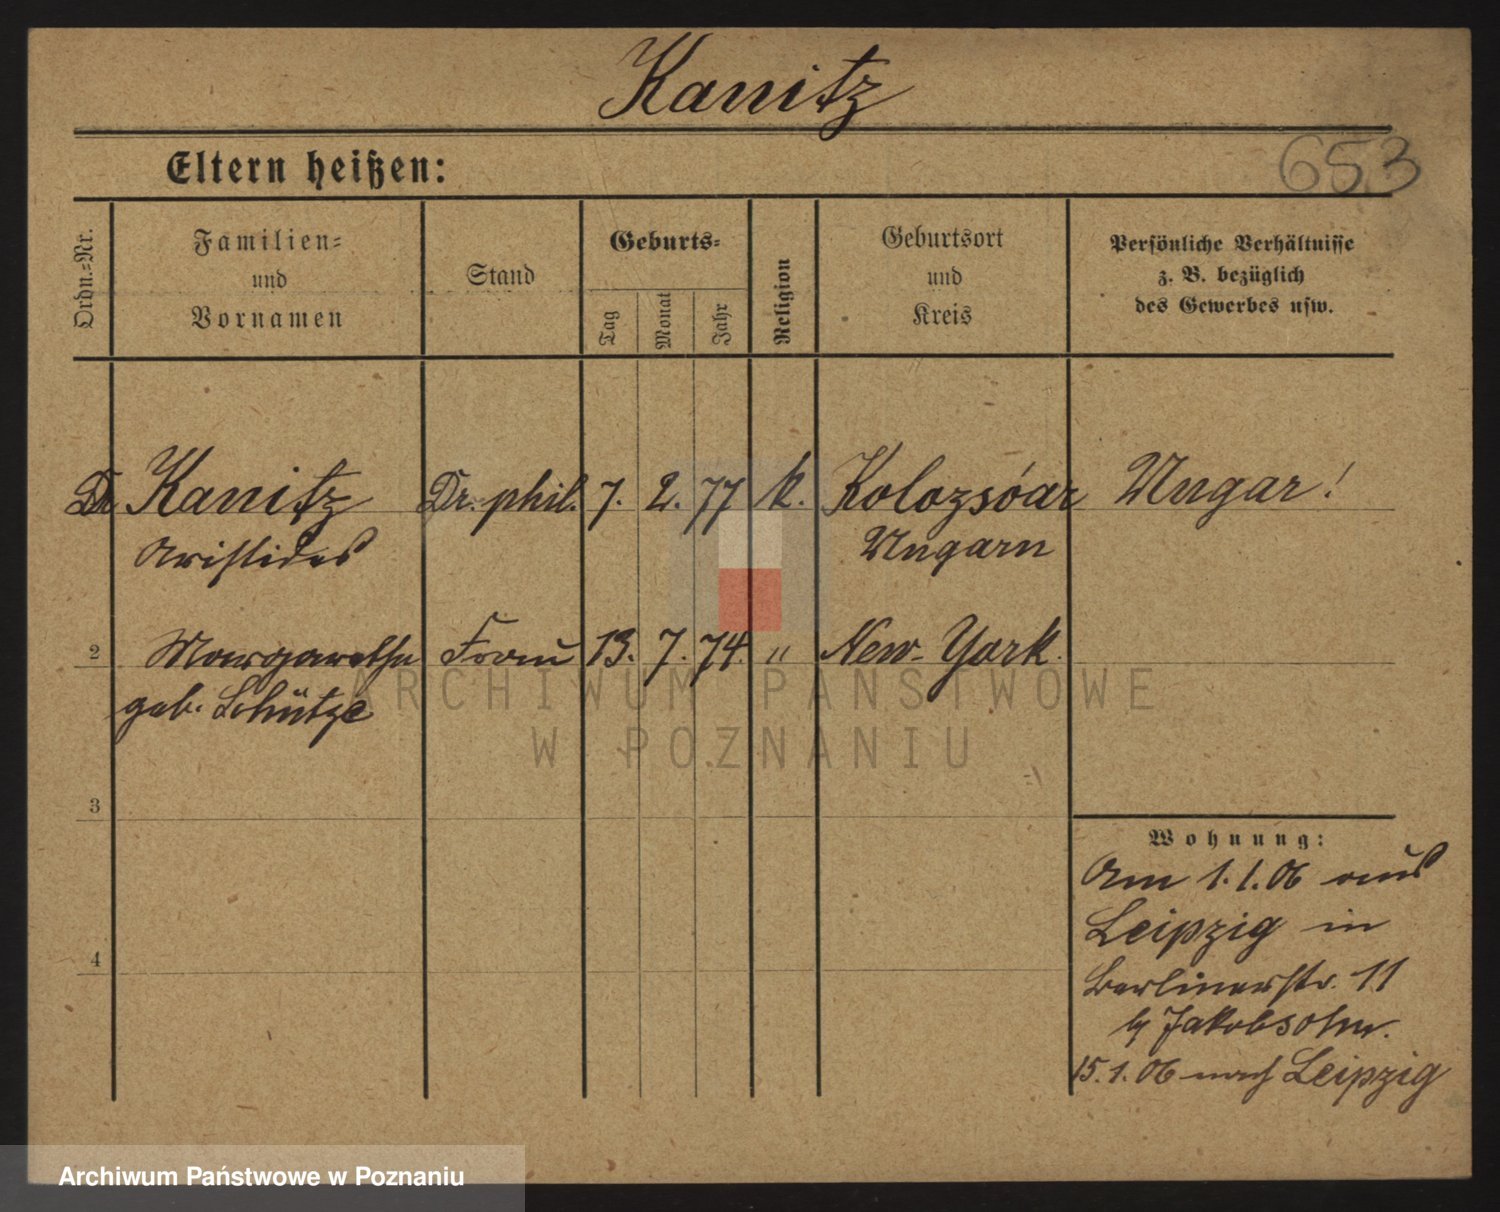 Kanitz
Eltern heißen:
653
Ordn.=Nr.
Familien=
und
Vornamen
Stand
Geburts=
Tag
Monat
Jahr
Religion
Geburtsort
und
Kreis
Persönliche Verhältnisse
z. B. bezüglich
des Gewerbes usw.
Dr. Kanitz Dr. phil. 7. 2. 77 k. Kolozsóar Ungar!
Aristides Ungarn
2 Margarethe Frau 13. 7. 74. " New-York.
geb. Schütze
ARCHIWUM PAŃSTWOWE
W POZNANIU
3
Wohnung:
Am 1.1.06 aus
Leipzig in
4
Berlinerstr. 11
by Jakobsohn.
15.1.06 nach Leipzig
Archiwum Państwowe w Poznaniu